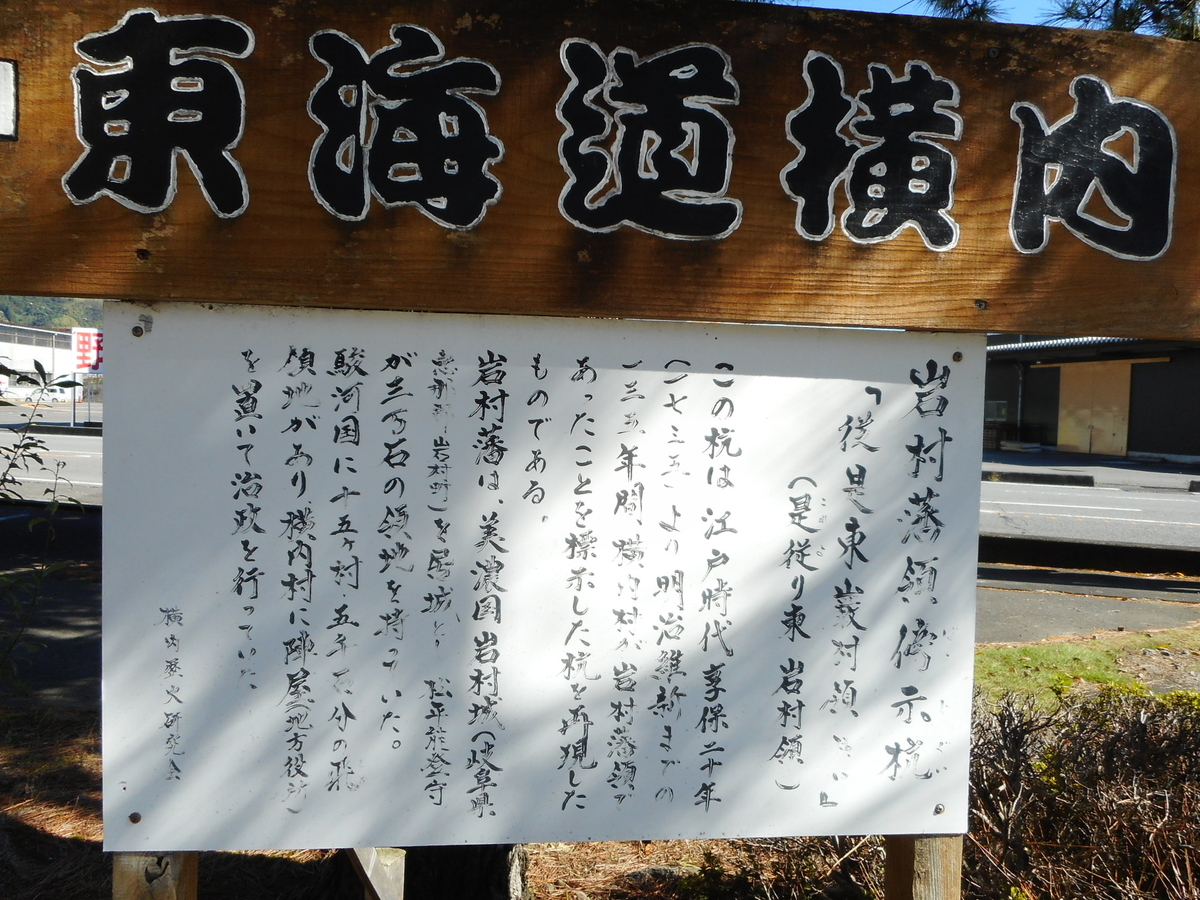 東海道横内
岩村藩領傍示杭
「従是東巌村領
(是従り東 岩村領)
この杭は江戸時代 享保二十年
(一七三五)より明治維新までの
一三五年間、横内村が岩村藩領で
あったことを標示した杭を再現した
ものである。
岩村藩は、美濃国岩村城(岐阜県
恵那郡岩村町)を居城とし 松平能登守
が三万石の領地を持っていた。
駿河国に十五ヶ村・五千石分の飛
領地があり、横内村に陣屋(地方役所)
を置いて治政を行っていた。
横内歴史研究会
野